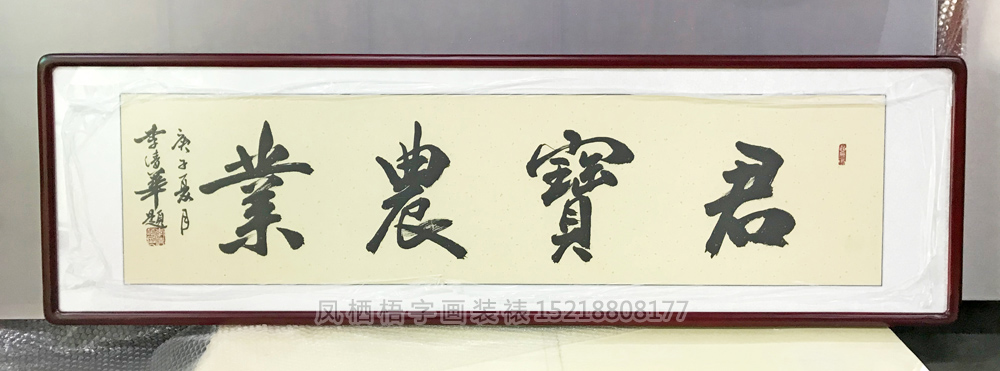 君寶農業
庚子夏月
李清華題
凤栖梧字画装裱15218808177